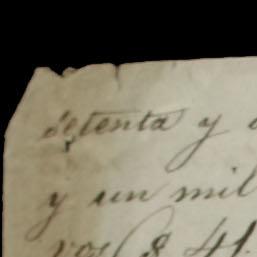 setenta y
y un mil
vos ($ 41.